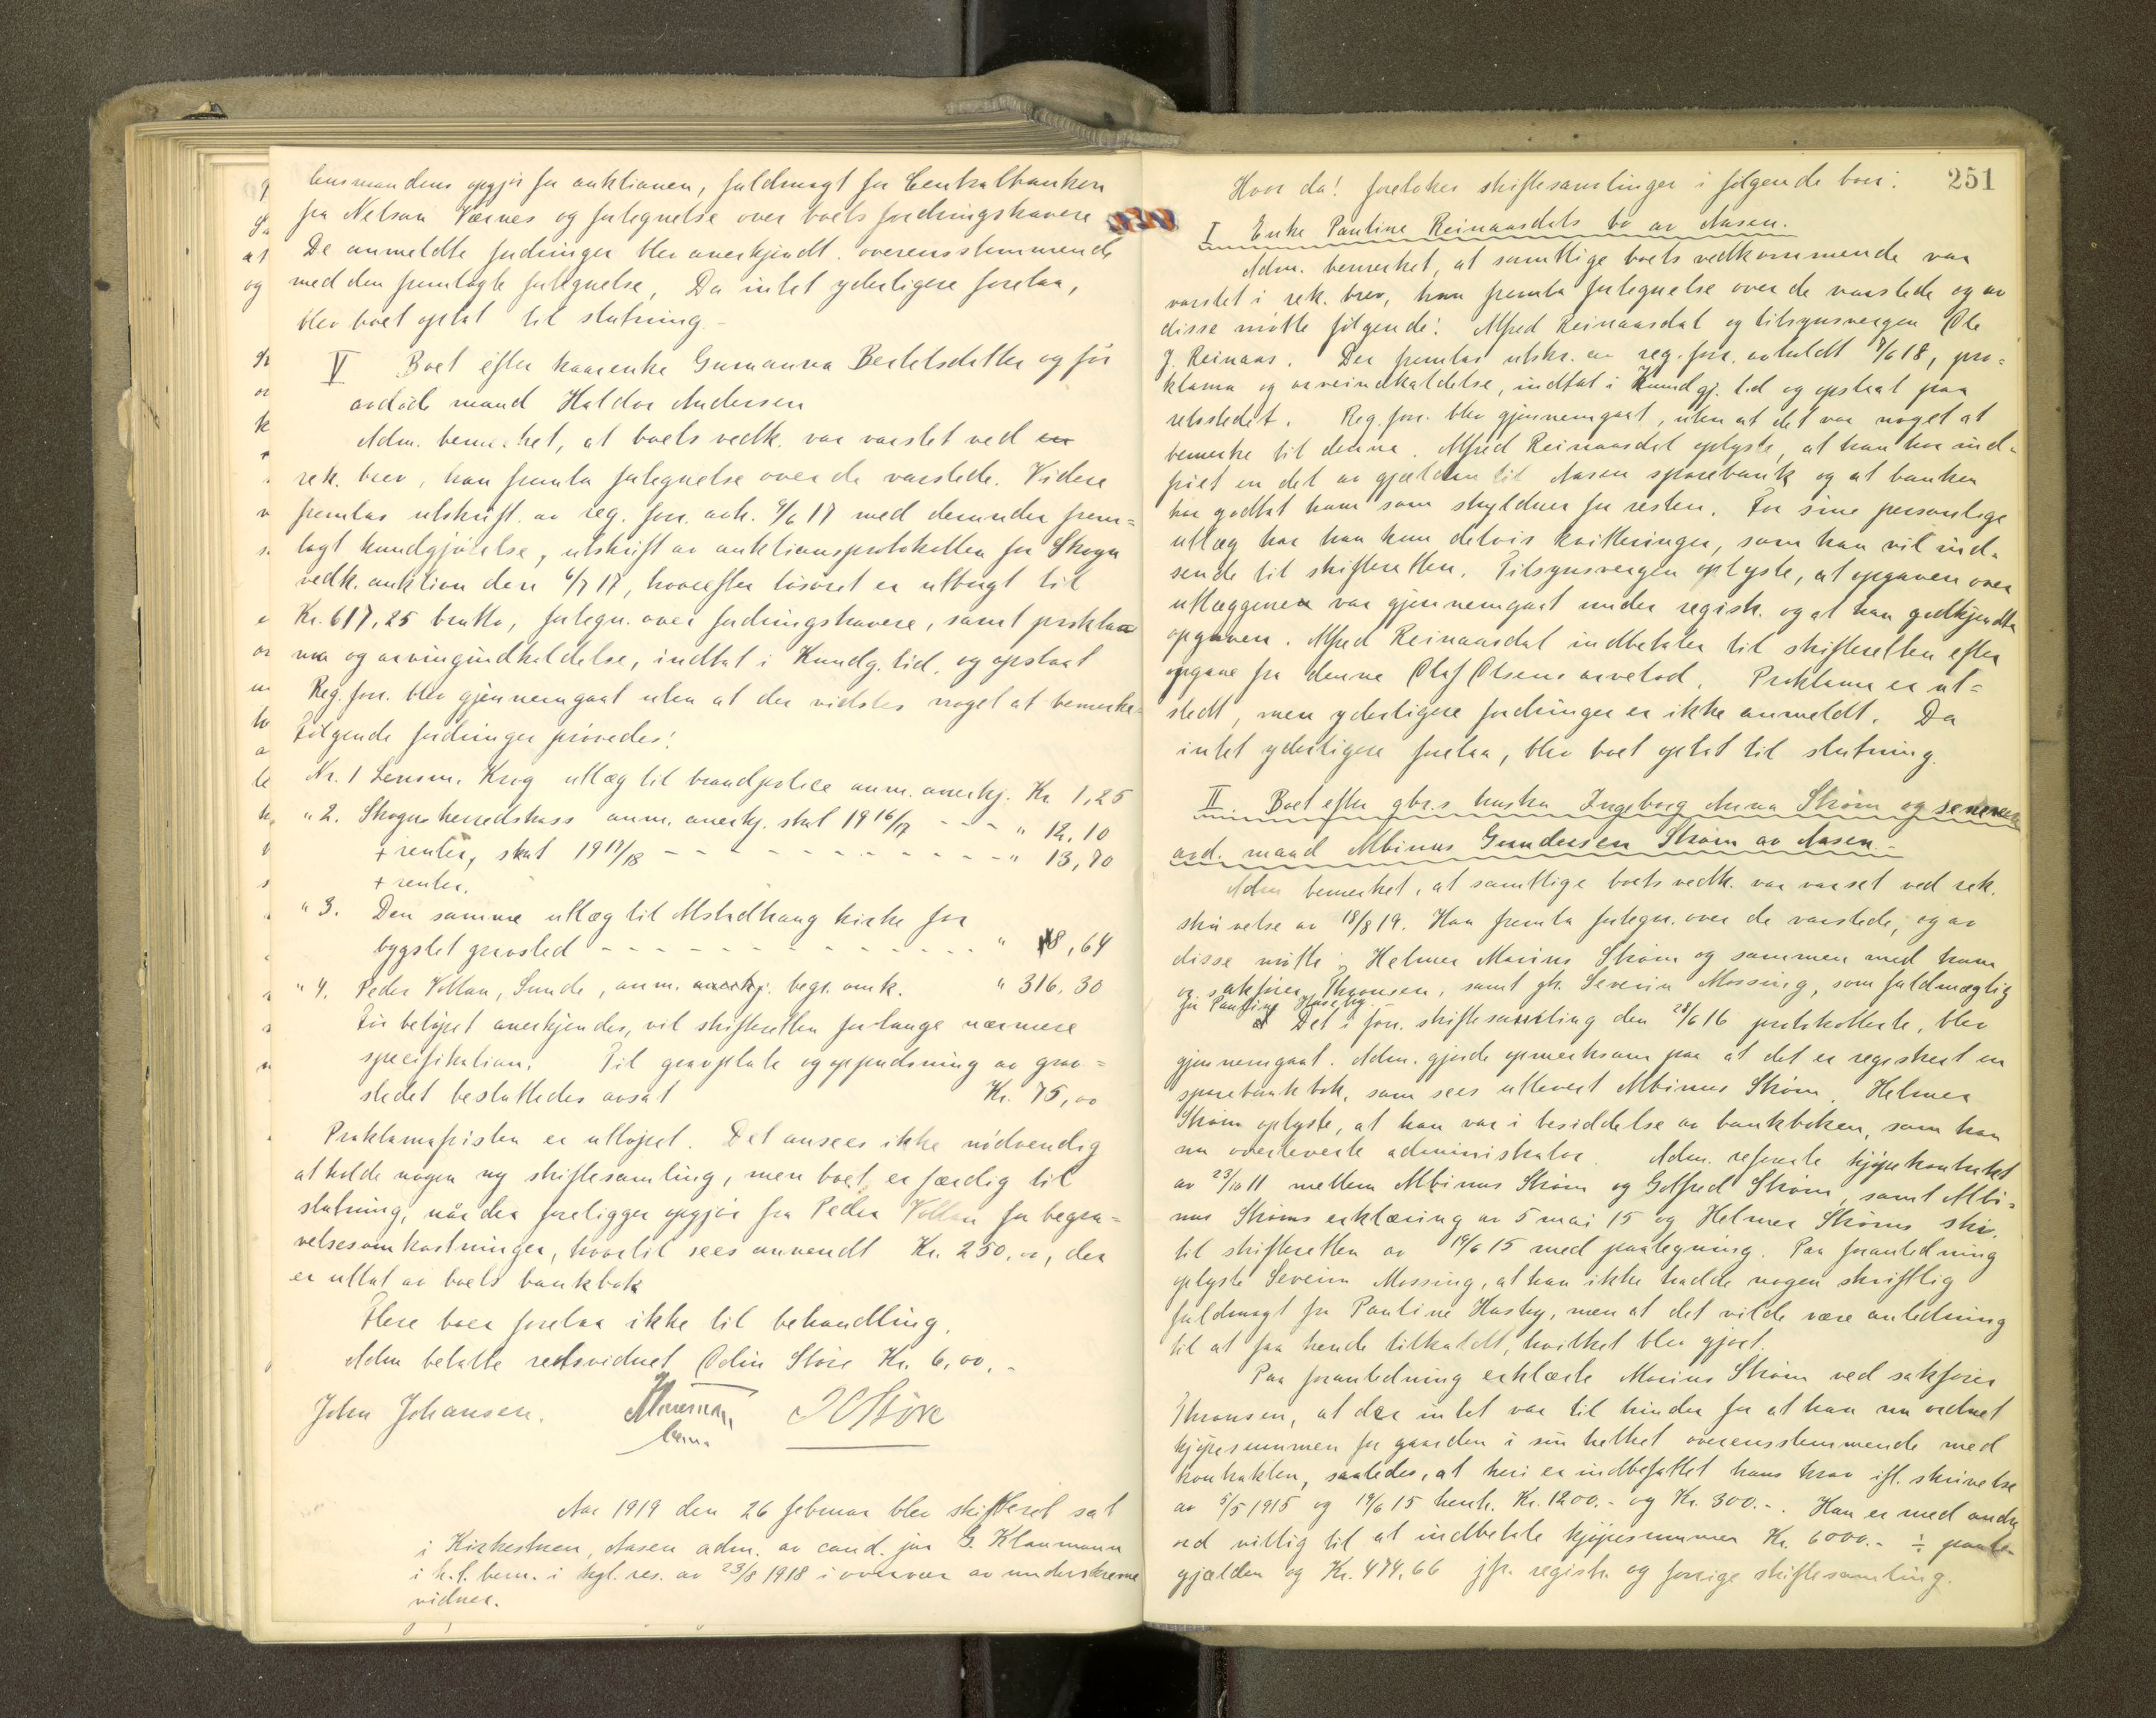 lensmandens opgjør for auktionen, fuldmagt for Centralbanken
fra Nelson Værnes og fortegnelse over boets fordringshavere
De anmeldte fordringer blev anerkjendt overensstemmende
med den fremlagte fortegnelse, Da intet yderligere forelaa,
blev boet optat til slutning –
V Boet efter kaarenke Gurianna Bertelsdatter og før
avdøde mand Haldor Andersen
Adm. bemerket, at boets vedk. var varslet ved en
rek. brev, han fremla fortegnelse over de varslede. Videre
fremlas utskrift av reg. forr. avh. 9/6 17 med derunder frem=
lagt kundgjørelse, utskrift av auktionsprotokollen for Skogn
vedk. auktion den 6/7 17, hvorefter løsøret er utbragt til
Kr. 617,25 brutto, fortegn. over fordringshavere, samt prokla
ma og arvingindkaldelse, indtat i Kundg. tid. og opslaat
Reg. forr. blev gjennemgaat uten at der vidstes noget at bemerke
Følgende fordringer prøvedes:
Nr. 1 Lensm. Krog utlæg til brandpolice anm. anerkj. Kr 1,25
" 2. Skogns herredskass anm. anerkj. skat 1916/17 - - - " 12,10
+ renter, skat 1917/18 - - - - - - - - - - - - " 13,70
+ renter.
" 3. Den samme utlæg til Alstadhaug kirke for
bygslet gravsted - - - - - - - - - - - - - " 8,64
" 4. Peder Vollan, Sunde, anm. anerkj. begr. omk. " 316,30
Før beløpet anerkjendes, vil skifteretten forlange nærmere
specifikation. Til gravplate og oppudsning av grav=
stedet besluttedes avsat Kr. 75,00
Proklamafristen er utløpet. Det ansees ikke nødvendig
at holde nogen ny skiftesamling, men boet er færdig til
slutning, når der foreligger opgjør fra Peder Vollan for begra=
velsesomkostninger, hvortil sees anvendt Kr. 250.00, der
er uttat av boets bankbok
Flere boer forelaa ikke til behandling.
Adm betalte retsvidnet Odin Støre Kr. 6,00. –
John Johansen. O Støre
Aar 1919 den 26 februar blev skifteret sat
i Kirkestuen, Aasen adm. av cand. jur G. Klaumann
i h.t. bem. i kgl. res. av 23/8 1918 i overvær av underskrevne
vidner.
251
Hvor da! foretokes skiftesamlinger i følgende boer:
I Enke Pauline Reinaasdals bo av Aasen.
Adm. bemerket, at samtlige boets vedkommende var
varslet i rek. brev, han fremla fortegnelse over de varslede og av
disse møtte følgende: Alfred Reinaasdal og tilsynsvergen Ole
J. Reinaas. Der fremlas utskr. av reg. forr. avholdt 7/6 18, pro=
klama og arveindkaldelse, indtat i Kundgj. tid og opslaat paa
retsstedet. Reg. forr. blev gjennemgaat, uten at det var noget at
bemerke til denne. Alfred Reinaasdal oplyste, at han har ind-
friet en del av gjælden til Aasen sparebank og at banken
har godtat ham som skyldner for resten. For sine personlige
utlæg har han kun delvis kvitteringer, som han vil ind-
sende til skifteretten. Tilsynsvergen oplyste, at opgaven over
utlæggene var gjennemgaat under registr. og at han godkjendte
opgaven. Alfred Reinaasdal indbetaler til skifteretten efter
opgave fra denne Olaf Olsens arvelod. Proklama er ut=
stedt, men yderligere fordringer er ikke anmeldt. Da
intet yderligere forelaa, blev boet optat til slutning.
II. Boet efter gbr.s hustru Ingeborg Anna Strøm og senere
avd. mand Albinus Gundersen Strøm av Aasen. –
Adm bemerket, at samtlige boets vedk. var varset ved rek.
skrivelse av 18/8 19. Han fremla fortegn. over de varslede, og av
disse møtte: Helmer Marius Strøm og sammen med ham
og sakfører Thronsen, samt gb. Severin Mossing, som fuldmægtig
for Pauline Husby.
Det i forr. skiftesamling den 28/6 16 protokollerte, blev
gjennemgaat. Adm. gjorde opmerksom paa at det er registrert en
sparebankbok, som sees utlevert Albinus Strøm. Helmer
Strøm oplyste, at han var i besiddelse av bankboken, som han
nu overleverte administrator. Adm. refererte kjøpekontrakt
av 23/10 11 mellem Albinus Strøm og Gotfred Strøm, samt Albi=
nus Strøms erklæring av 5 mai 15 og Helmer Strøms skr.
til skifteretten av 19/6 15 med paategning. Paa foranledning
oplyste Severin Mossing, at han ikke hadde nogen skriftlig
fuldmagt fra Pauline Husby, men at det vilde være anledning
til at faa hende tilkaldt, hvilket blev gjort.
Paa foranledning erklærte Marius Strøm ved sakfører
Thronsen, at der intet var til hinder for at han nu ordnet
kjøpesummen for gaarden i sin helhet overensstemmende med
kontrakten, saaledes, at heri er indbefattet hans krav ifl. skrivelse
av 5/5 1915 og 19/6 15 henh. Kr. 1200.- og Kr. 300.-. Han er med andre
ord villig til at indbetale kjøpesummen Kr. 6000.- ÷
gjælden og Kr. 474,66 jfr. registr. og forrige skiftesamling.